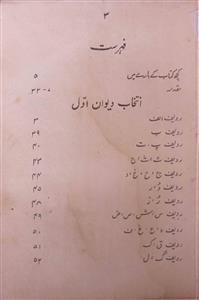 ۳
فہرست
کچھ کتاب کے بارے میں ۵
مقدمہ ۷-۳۲
انتخاب دیوان اوّل
ردیف الف ۳
ردیف ب ۳۹
ردیف پ، ت ۴۰
ردیف ث، ج ۴۳
ردیف چ، ح، خ، د ۴۴
ردیف ر ۴۵
ردیف ز ۴۸
ردیف س، ش، ص، ض ۴۹
ردیف ع، غ، ف ۵۰
ردیف ق، ک ۵۱
ردیف گ، ل ۵۲